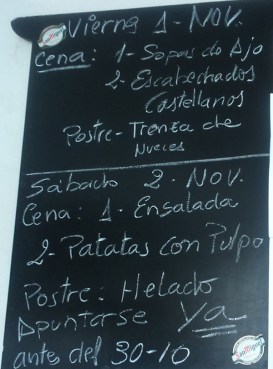 Vierns 1-NOV.
Cena: 1- Sopas de Ajo
2- Escabechados
Castellanos
Postre- Trenza de
Nueces
Sábado 2-NOV.
Cena: 1- Ensalada
2- Patatas con Pulpo
Postre: Helado
Apuntarse Ya
antes del 30-10